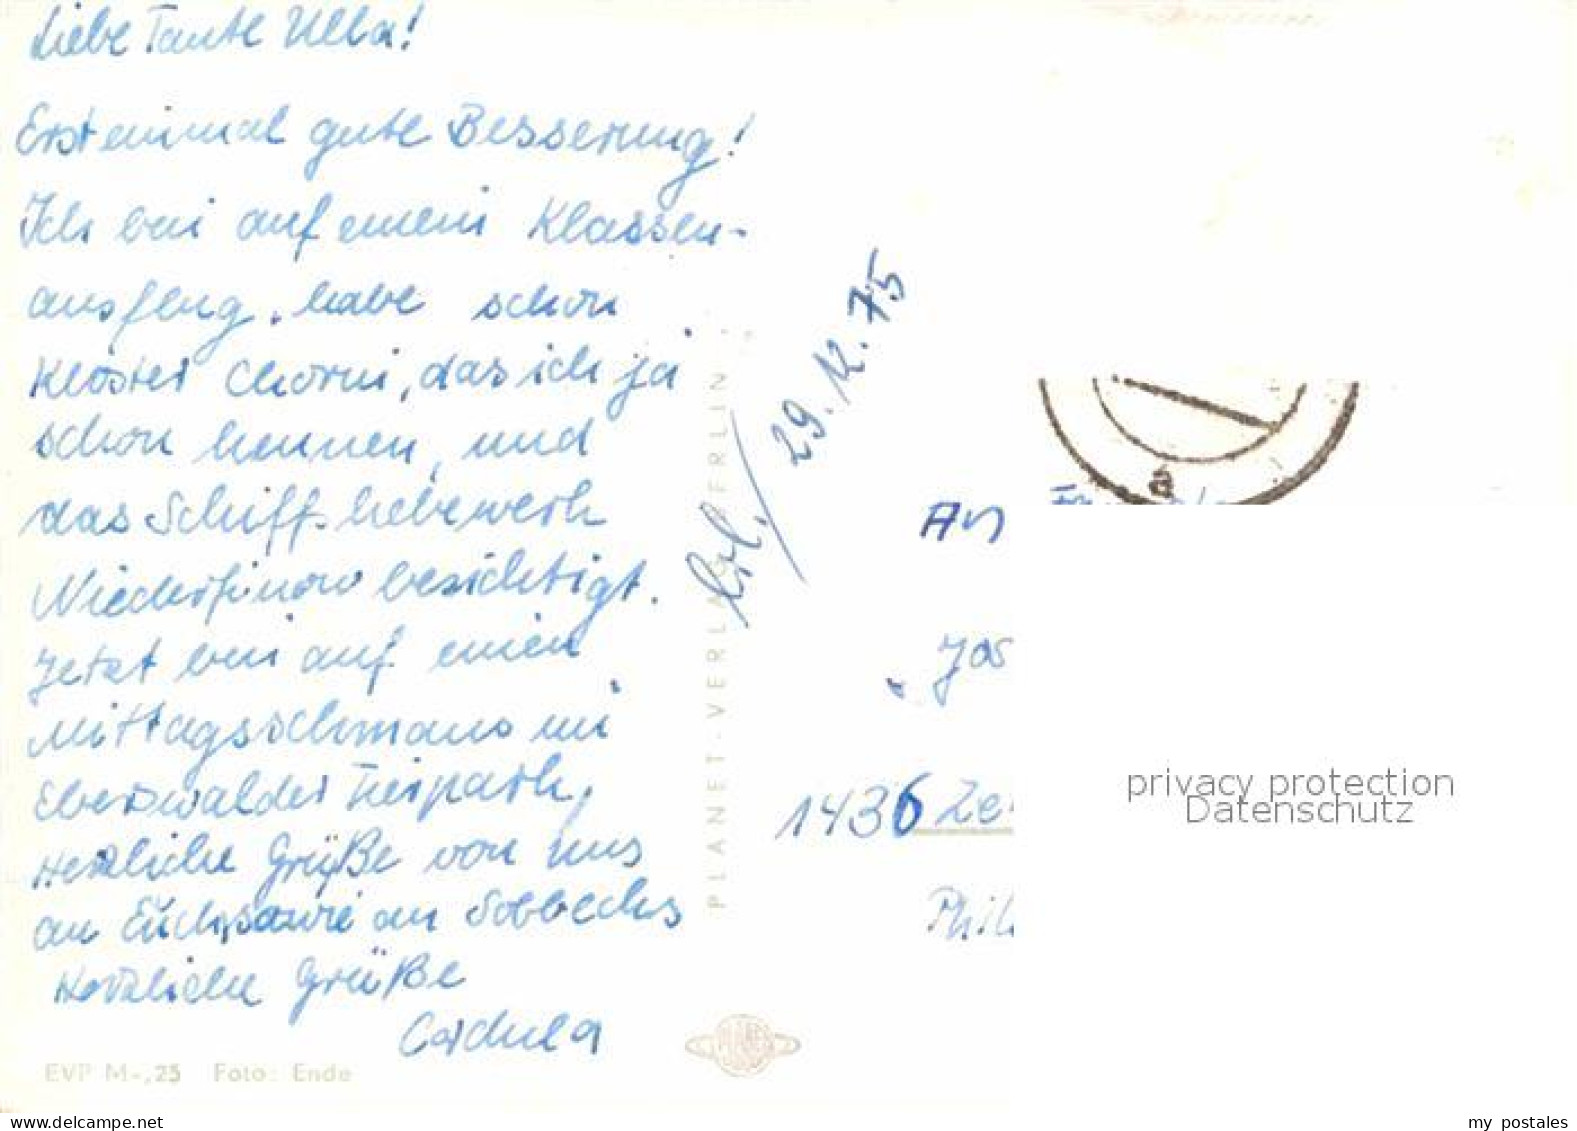 Liebe Tante Ulla!
Ersteinmal gute Besserung!
Ich bin auf einem Klassen-
ausflug, habe schon
Kloster Chorin, das ich ja
schon kennen, und
das Schiffshebewerk
Niederfinow besichtigt.
Jetzt bin auf einen
Mittagsschmaus im
Eberswalder Tierpark,
Herzliche Grüße von uns
an Euch, sowie an Sobbecks
Herzliche Grüße
Cordula
EVP M -,25 Foto: Ende
PLANET-VERLAG BERLIN
erl. 29.12.75
An
1436 Ze
Phil
privacy protection
Datenschutz
my postales